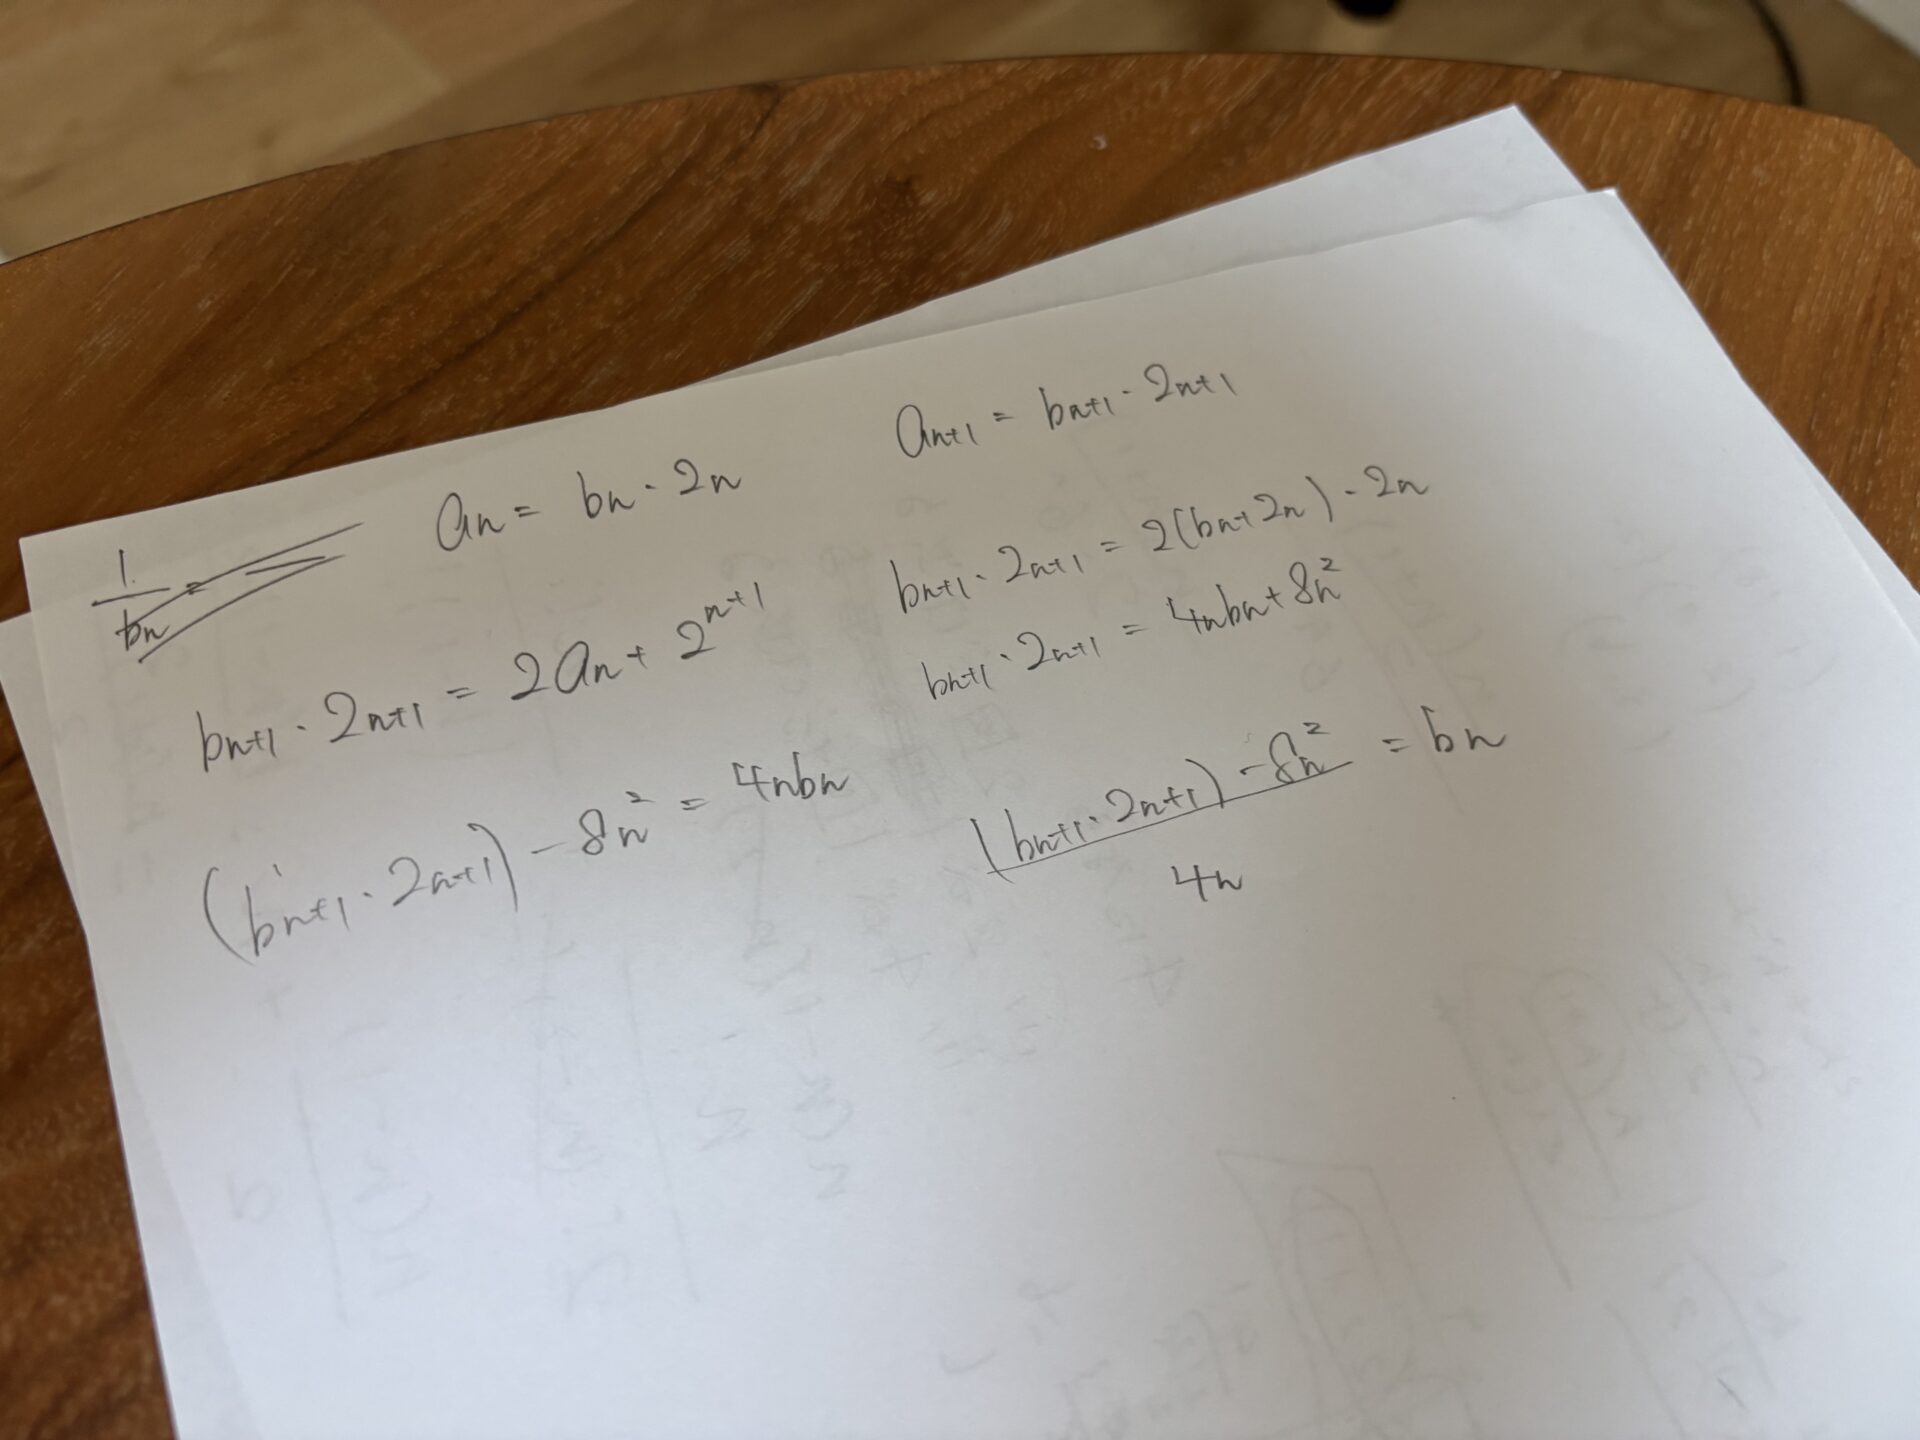 an = bn · 2n
an+1 = bn+1 · 2n+1
1
bn =
bn+1 · 2n+1 = 2an + 2^n+1
bn+1 · 2n+1 = 2(bn+2n) · 2n
bn+1 · 2n+1 = 4nbn + 8n²
(bn+1 · 2n+1) - 8n² = 4nbn
(bn+1 · 2n+1) - 8n² = bn
4n